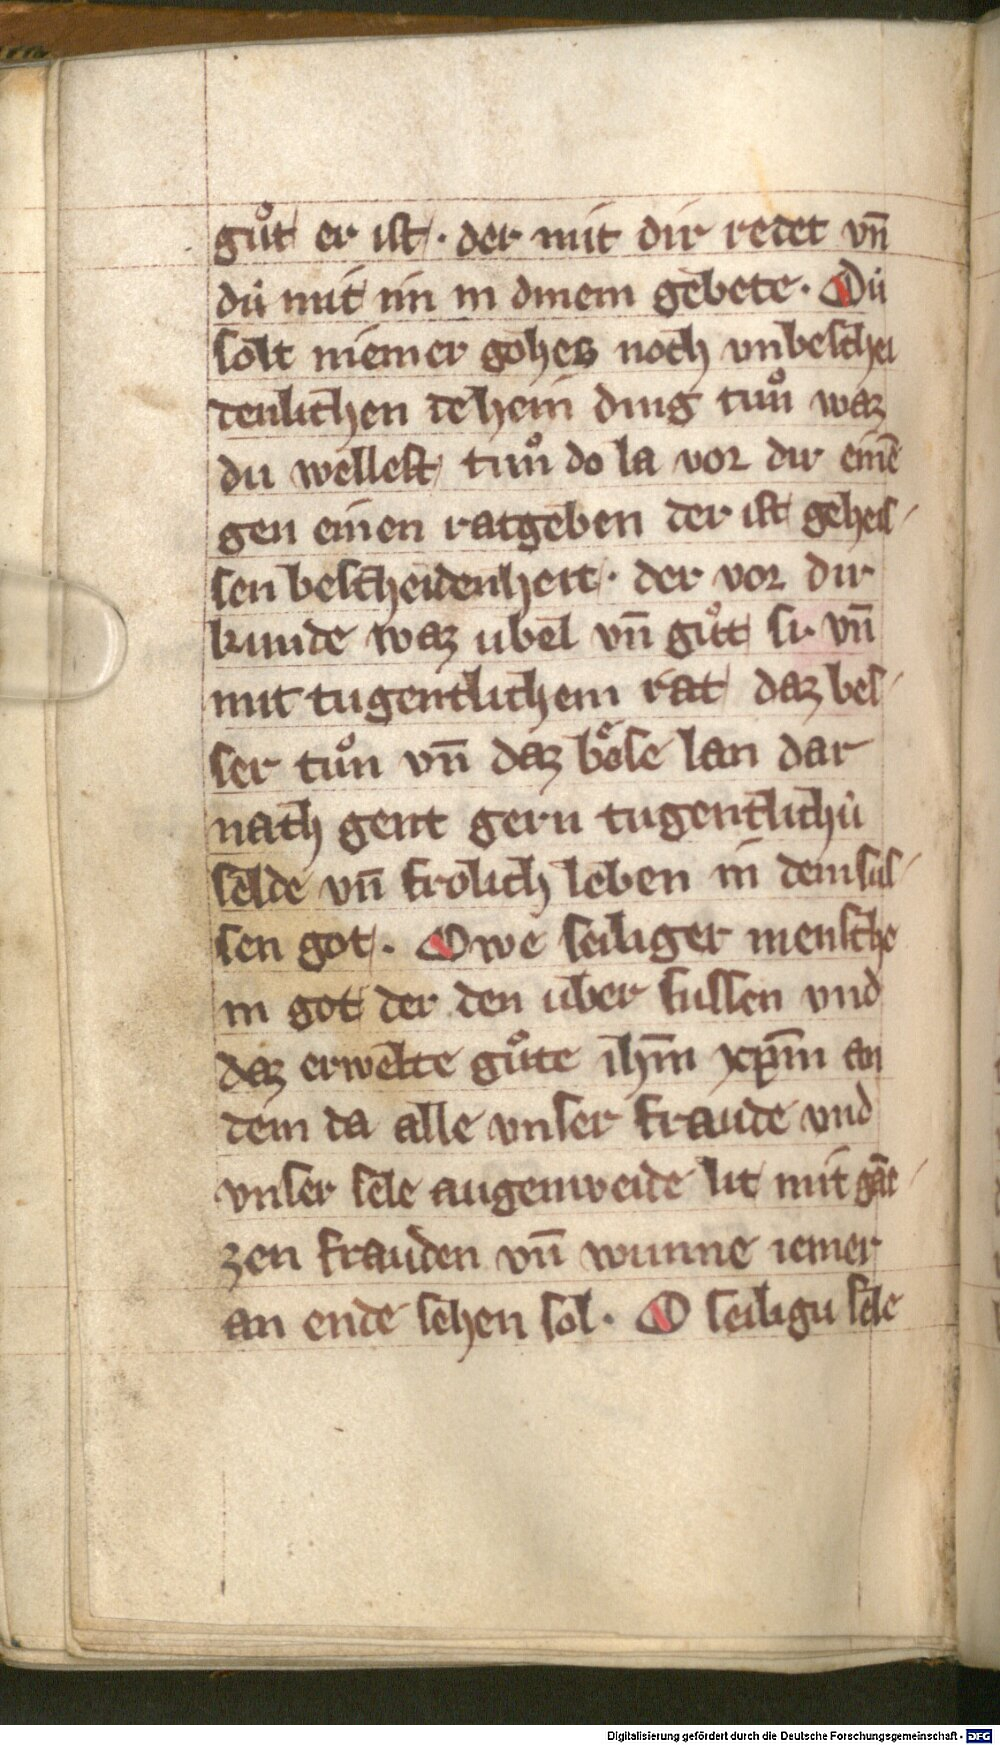 guͦt er ist · der mit dir redet vn̄
du mit im in dinem gebete · Du
solt niemer gohes noch vnbeschei
denlichen dehein ding tuͦn waz
du wellest tuͦn do la vor dir einē
gen einen ratgeben der ist geheis-
sen bescheidenheit · der vor dir
kunde waz ubel vn̄ guͦt si · vn̄
mit tugentlichem rat daz bes-
ser tuͦn vn̄ daz boͤse lan dar
nach gent gern tugentlichú
selde vn̄ frolich leben in dem suͤs-
sen got · Owe seiliger mensche
in got der den uber sussen vnd
daz erwelte guͦte ihm̄ xp̄m an
dem da alle vnser fraude vnd
vnser sele augenweide lit mit gāt-
zen frauden vn̄ wunne iemer
an ende sehen sol · O seiligu sele
Digitalisierung gefördert durch die Deutsche Forschungsgemeinschaft - DFG